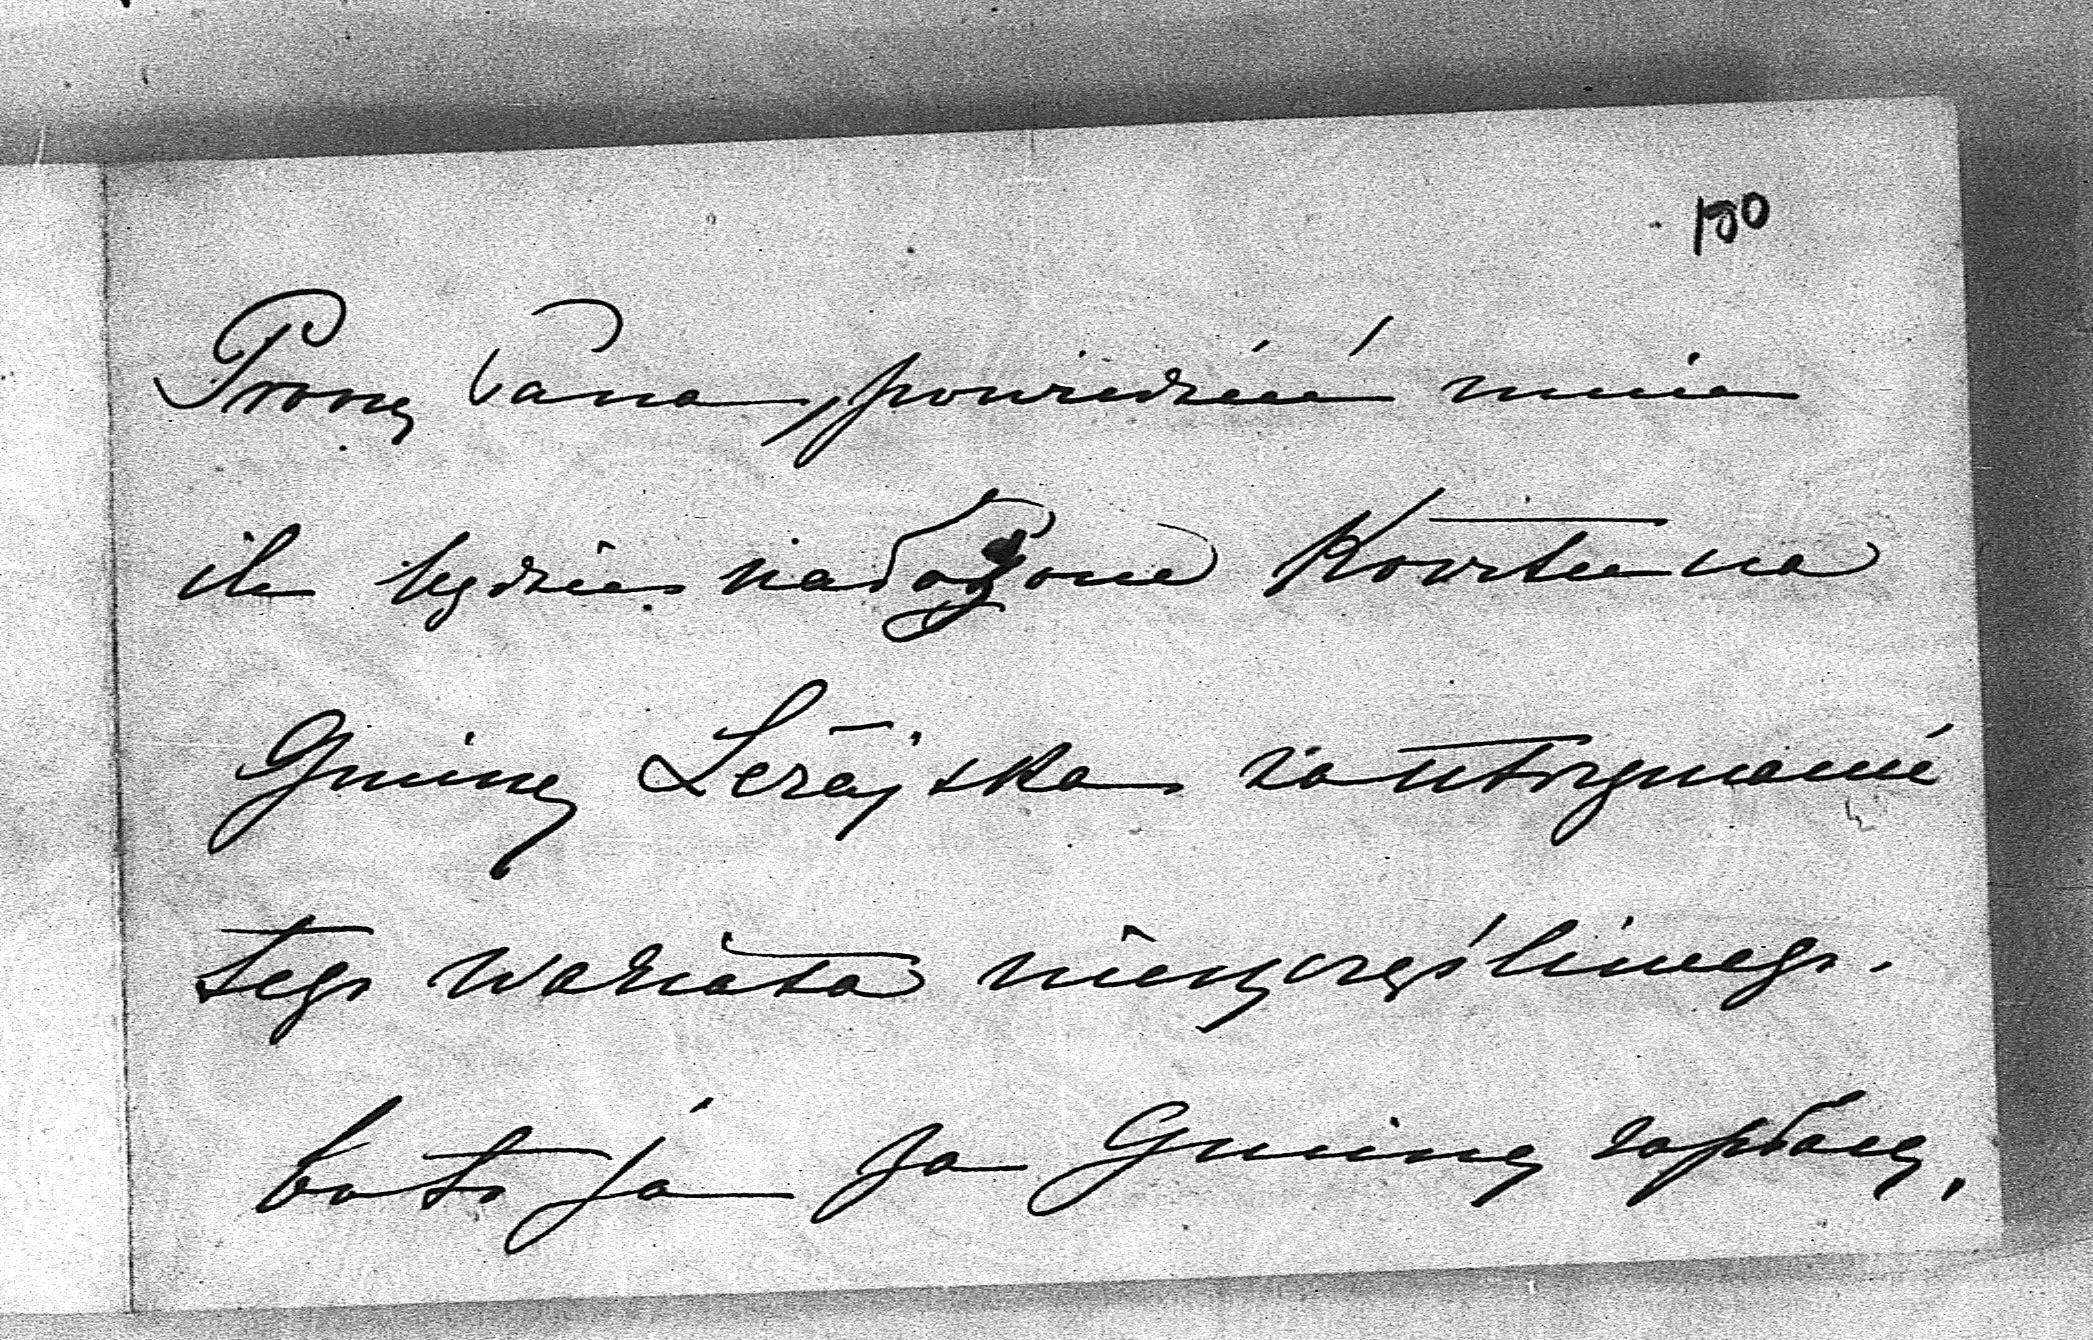 100
Proszę Pana, powiedzieć mnie
ile będzie nałożone Kosztu na
Gminę Leżajska za utrzymanie
tego waryata nieszczęśliwego.
bo to ja za Gminę zapłacę,